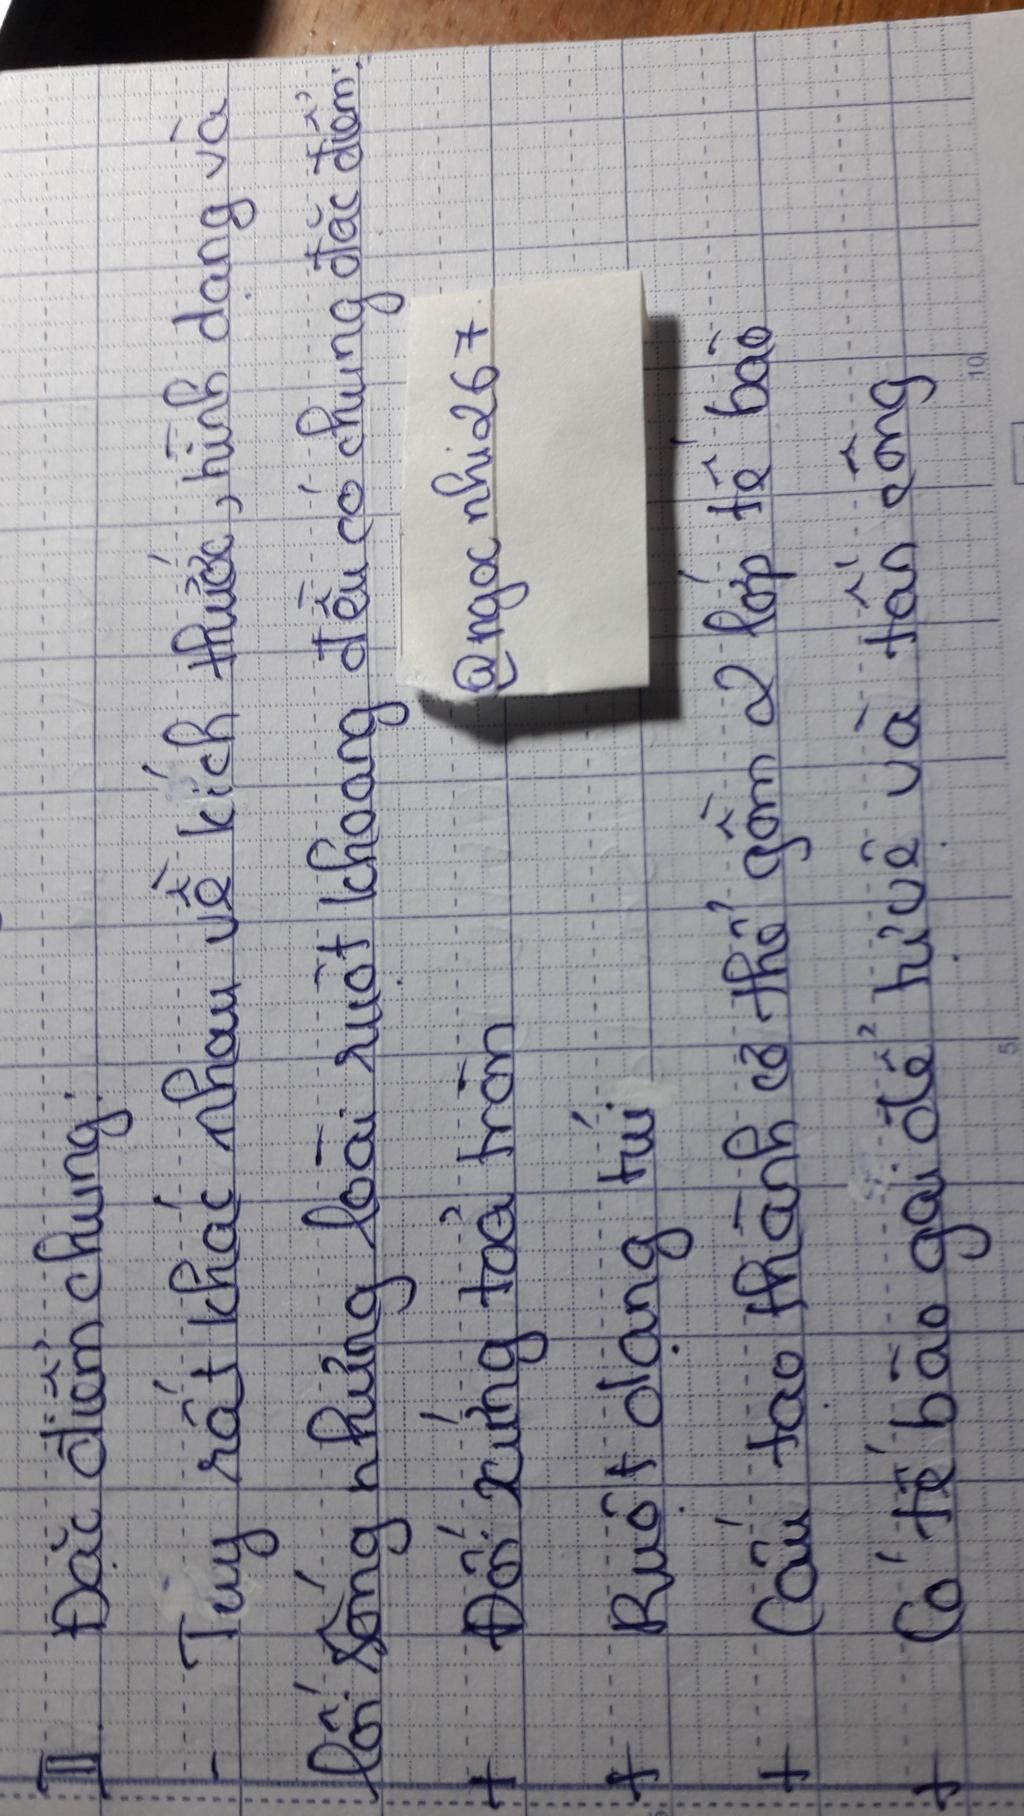 II. Đặc điểm chung.
- Tuy rất khác nhau về kích thước, hình dạng và
lối sống nhưng loài ruột khoang đều có chung đặc điểm:
+ Đối xứng toả tròn
@ngocnhi267
+ Ruột dạng túi
+ Cấu tạo thành cơ thể gồm 2 lớp tế bào
+ Có tế bào gai để tự vệ và tấn công
5
10